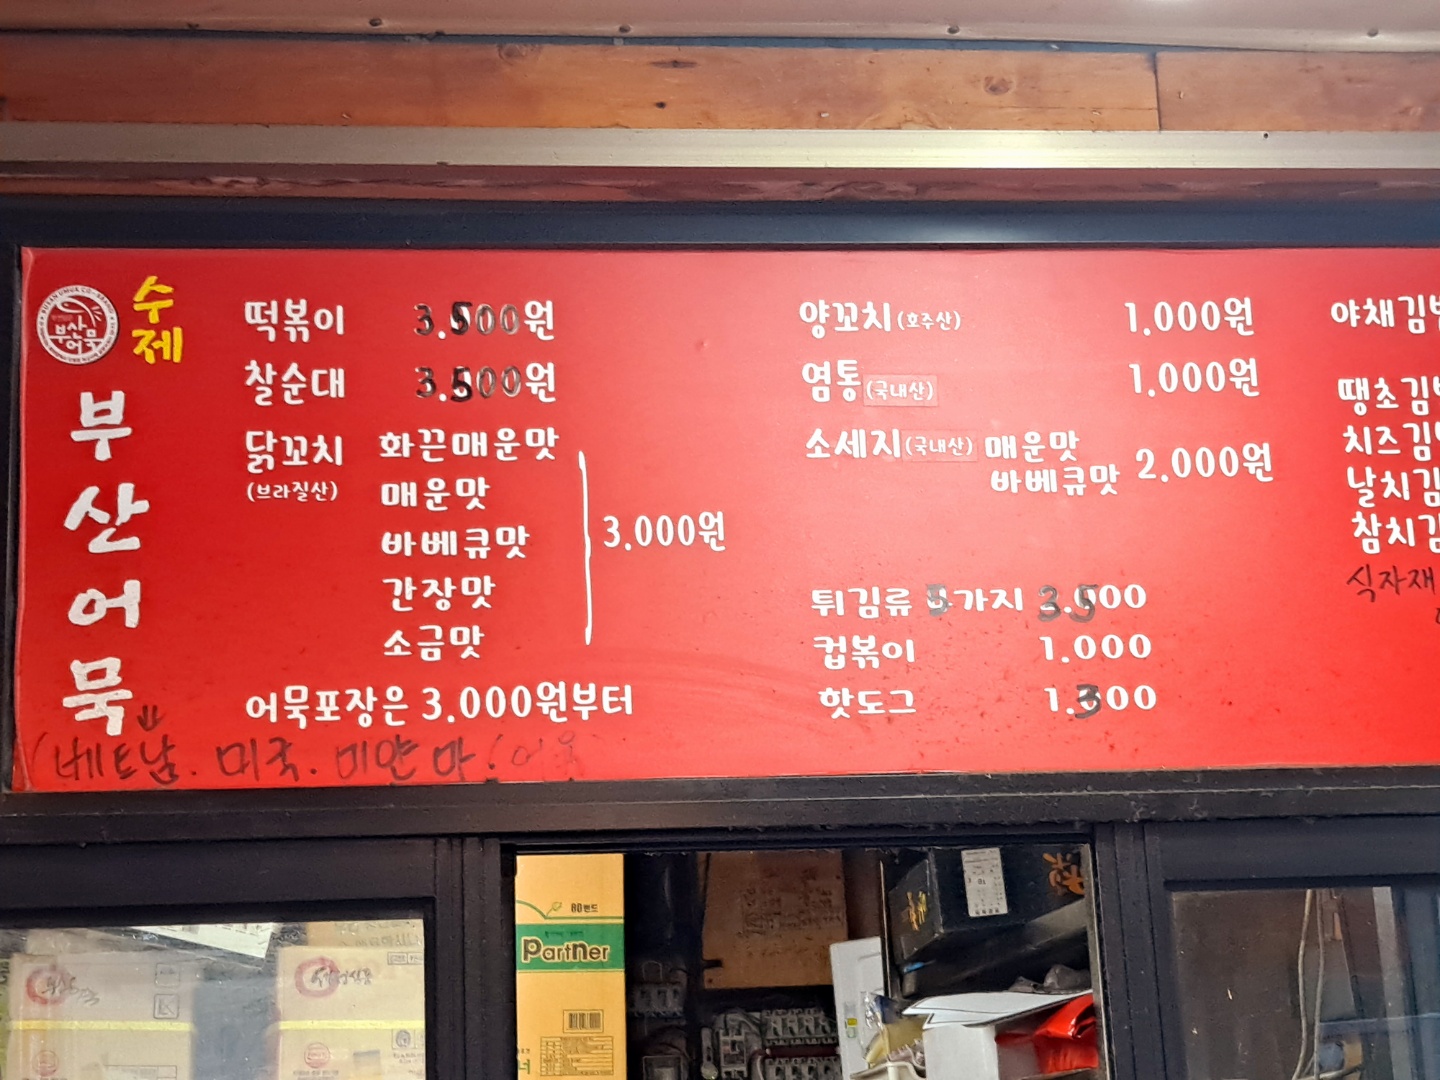 수제
부산어묵
부산
어묵
떡볶이 3.500원
찰순대 3.500원
닭꼬치 화끈매운맛
(브라질산) 매운맛
바베큐맛
간장맛
소금맛
3.000원
어묵포장은 3.000원부터
(베트남. 미국. 미얀마
양꼬치(호주산) 1.000원
염통(국내산) 1.000원
소세지(국내산) 매운맛
바베큐맛 2.000원
튀김류 5가지 3.500
컵볶이 1.000
핫도그 1.300
야채김
땡초김
치즈김
날치김
참치김
식자재
80밴드
Partner